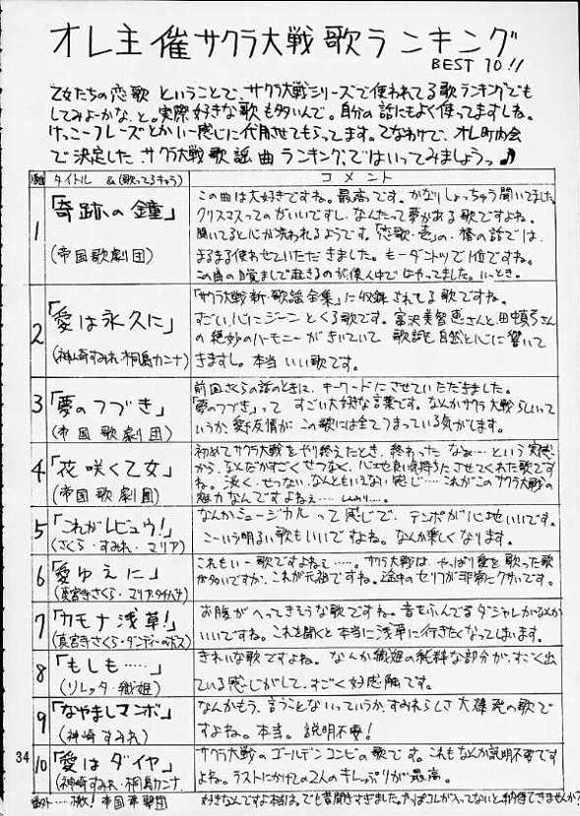 オレ主催サクラ大戦歌ランキング
BEST 10!!
乙女たちの恋歌 ということで、サクラ大戦シリーズで使われてる歌ランキングでも
してみよーかな、と。実際好きな歌も多いんで。自分の話にもよく使ってますしね。
けっこーフレーズとかいい感じに代用させてもらってます。てなわけで、オレ町内会
で決定した サクラ大戦歌謡曲ランキング、ではいってみましょうっ♪
タイトル &(歌ってるキャラ)
コメント
1
「奇跡の鐘」
(帝国歌劇団)
この曲は大好きですね。最高です。かなりしょっちゅう聞いてました。
クリスマスってのがいいですし、なんたって夢がある歌ですよね。
聞いてると心が洗われるようです。「恋歌・壱」の、椿の話では、
まるまる使わせていただきました。もーダントツで1位ですね。
この曲の目覚ましで起きるのが仲間中ではやってました。いっとき。
2
「愛は永久に」
(神崎すみれ・桐島カンナ)
「サクラ大戦 新・歌謡全集」に収録されてる歌ですね。
すごい、心にジーンとくる歌です。富沢美智恵さんと田中真弓さん
の絶妙のハーモニーがきいていて 歌詞も自然と心に響いて
きますし。本当いい歌です。
3
「夢のつづき」
(帝国歌劇団)
前回さくらの話のときに、キーワードにさせていただきました。
「夢のつづき」って すごい大好きな言葉です。なんかサクラ大戦らしいって
いうか、愛と友情が この歌には全てつまっている気がします。
4
「花咲く乙女」
(帝国歌劇団)
初めてサクラ大戦をやり終えたとき、終わった なぁ…という実感
から、なんだかすごくせつなく、心地良い気持ちにさせてくれた歌です
ね。淡く、せつない、なんともいえない感じ… これがこのサクラ大戦の
魅力なんですよねぇ…
5
「これがレビュウ!」
(さくら・すみれ・マリア)
なんかミュージカルって感じで、テンポが心地いいです。
こーいう明るい歌もいいですよね。なんか楽しくなります。
6
「愛ゆえに」
(真宮寺さくら・マリア・タチバナ)
これもいー歌ですよねぇ……。サクラ大戦は、やっぱり愛を歌った歌
が多いですが、これが元祖ですね。途中のセリフが非常にクサいです。
7
「カモナ浅草!」
(真宮寺さくら・ダンディーのボス)
お腹がへってきそうな歌ですね。音をふんでるダジャレかなんか
いいですね。これを聞くと本当に浅草に行きたくなってしまいます。
8
「もしも……」
(ソレッタ・織姫)
きれいな歌ですよね。なんか織姫の純粋な部分が、すごく出
ている感じがして、すごく好感触です。
9
「なやましマンボ」
(神崎すみれ)
なんかもう、言うことないっていうか、すみれらしさ大爆発の歌で
すよね。本当。説明不要!
10
「愛はダイヤ」
(神崎すみれ・桐島カンナ)
サクラ大戦のゴールデンコンビの歌です。これもなんか説明不要です
よね。ラストにかけての2人のキレっぷりが最高。
番外…「檄!帝国華撃団」
好きなんですよ本当は。でも昔聞きすぎました。やっぱコレが入ってないと、納得できませんか?
34